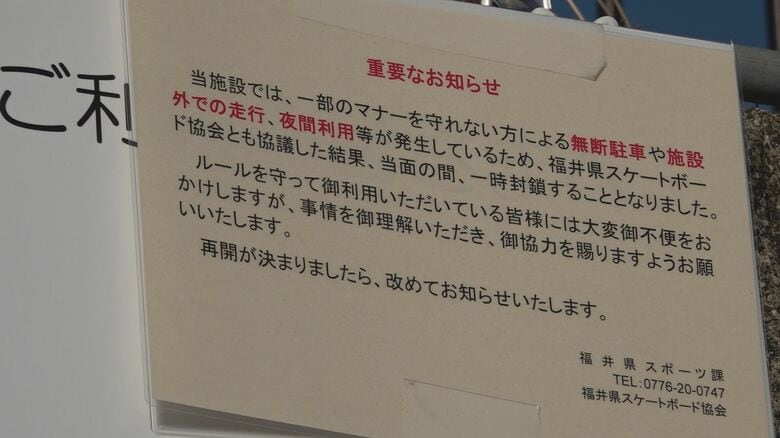 ご利
重要なお知らせ
当施設では、一部のマナーを守れない方による無断駐車や施設
外での走行、夜間利用等が発生しているため、福井県スケートボー
ド協会とも協議した結果、当面の間、一時封鎖することとなりました。
ルールを守って御利用いただいている皆様には大変御不便をお
かけしますが、事情を御理解いただき、御協力を賜りますようお願
いいたします。
再開が決まりましたら、改めてお知らせいたします。
福井県スポーツ課
TEL:0776-20-0747
福井県スケートボード協会